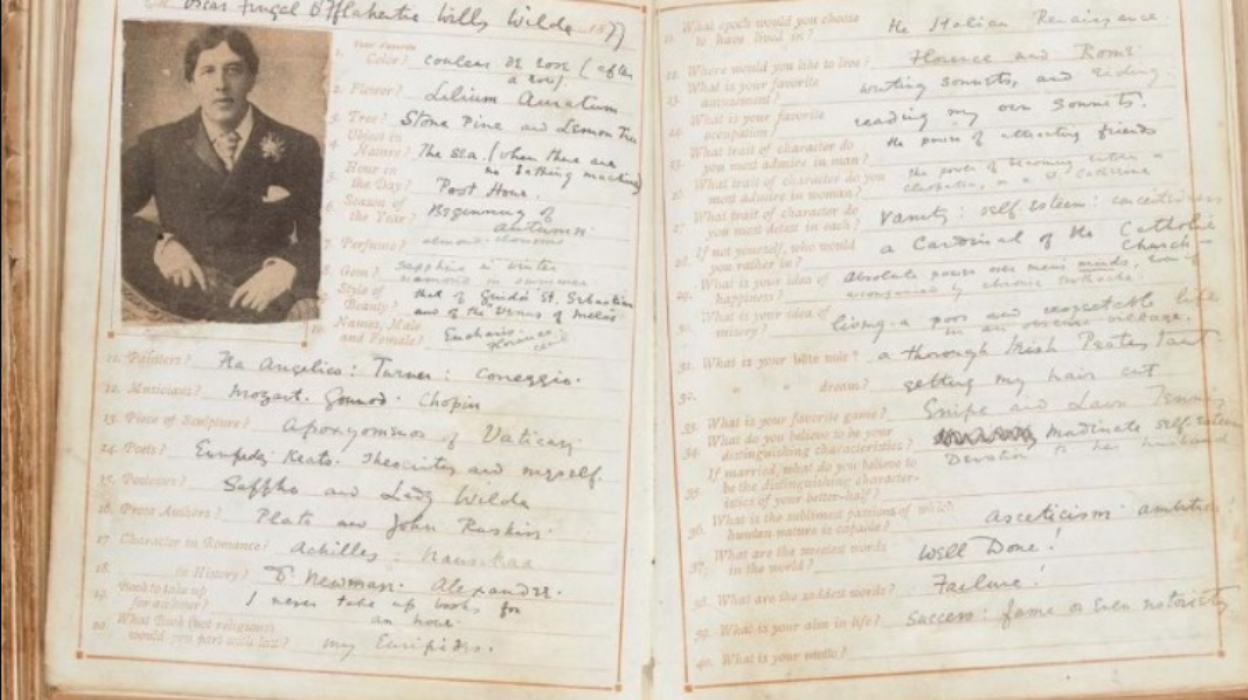 Oscar Fingal O'Fflahertie Wills Wilde 1877
Your Favorite
1. Color? couleur de rose (after
a rose)
2. Flower? Lilium Auratum
3. Tree? Stone Pine and Lemon Tree
4. Object in
Nature? The sea. (when there are
no bathing machines)
5. Hour in
the Day? Post Hour.
6. Season of
the Year? Beginning of
autumn.
7. Perfume? almond-blossoms
8. Gem? sapphire in winter
diamond in summer
Style of
Beauty? that of Guido's St. Sebastian
and of the Venus of Melos
10. Names, Male
and Female? Eucharis
11. Painters? Fra Angelico: Turner: Correggio.
12. Musicians? Mozart. Gounod. Chopin
13. Piece of Sculpture? Apoxyomenos of Vatican
14. Poets? Euripides Keats. Theocritus and myself.
15. Poetesses? Sappho and Lady Wilde
16. Prose Authors? Plato and John Ruskin.
17. Character in Romance? Achilles: Nausikaa
18. in History? Dr Newman. Alexander.
19. Book to take up
for an hour? I never take up books for
an hour.
20. What Book (not religious)
would you part with last? my Euripides.
21. What epoch would you choose
to have lived in? the Italian Renaissance.
22. Where would you like to live? Florence and Rome
23. What is your favorite
amusement? writing sonnets, and riding.
24. What is your favorite
occupation? reading my own sonnets.
25. What trait of character do
you most admire in man? the power of attracting friends
26. What trait of character do you
most admire in woman? the power of becoming either a
Cleopatra, or a St. Catherine
27. What trait of character do
you most detest in each? Vanity: self esteem: conceitedness
28. If not yourself, who would
you rather be? a Cardinal of the Catholic
Church
29. What is your idea of
happiness? absolute power over men's minds, even if
accompanied by chronic toothache
30. What is your idea of
misery? living a poor and respectable life
in an obscure village.
31. What is your bête noir? a thorough Irish Protestant
32. " " dream? getting my hair cut
33. What is your favorite game? Snipe and Lawn Tennis
34. What do you believe to be your
distinguishing characteristics? inordinate self-esteem
35. If married, what do you believe to
be the distinguishing character-
istics of your better-half? Devotion to her husband
36. What is the sublimest passion of which
human nature is capable? asceticism ambition
37. What are the sweetest words
in the world? Well Done!
38. What are the saddest words? Failure!
39. What is your aim in life? Success: fame or even notoriety
40. What is your motto?